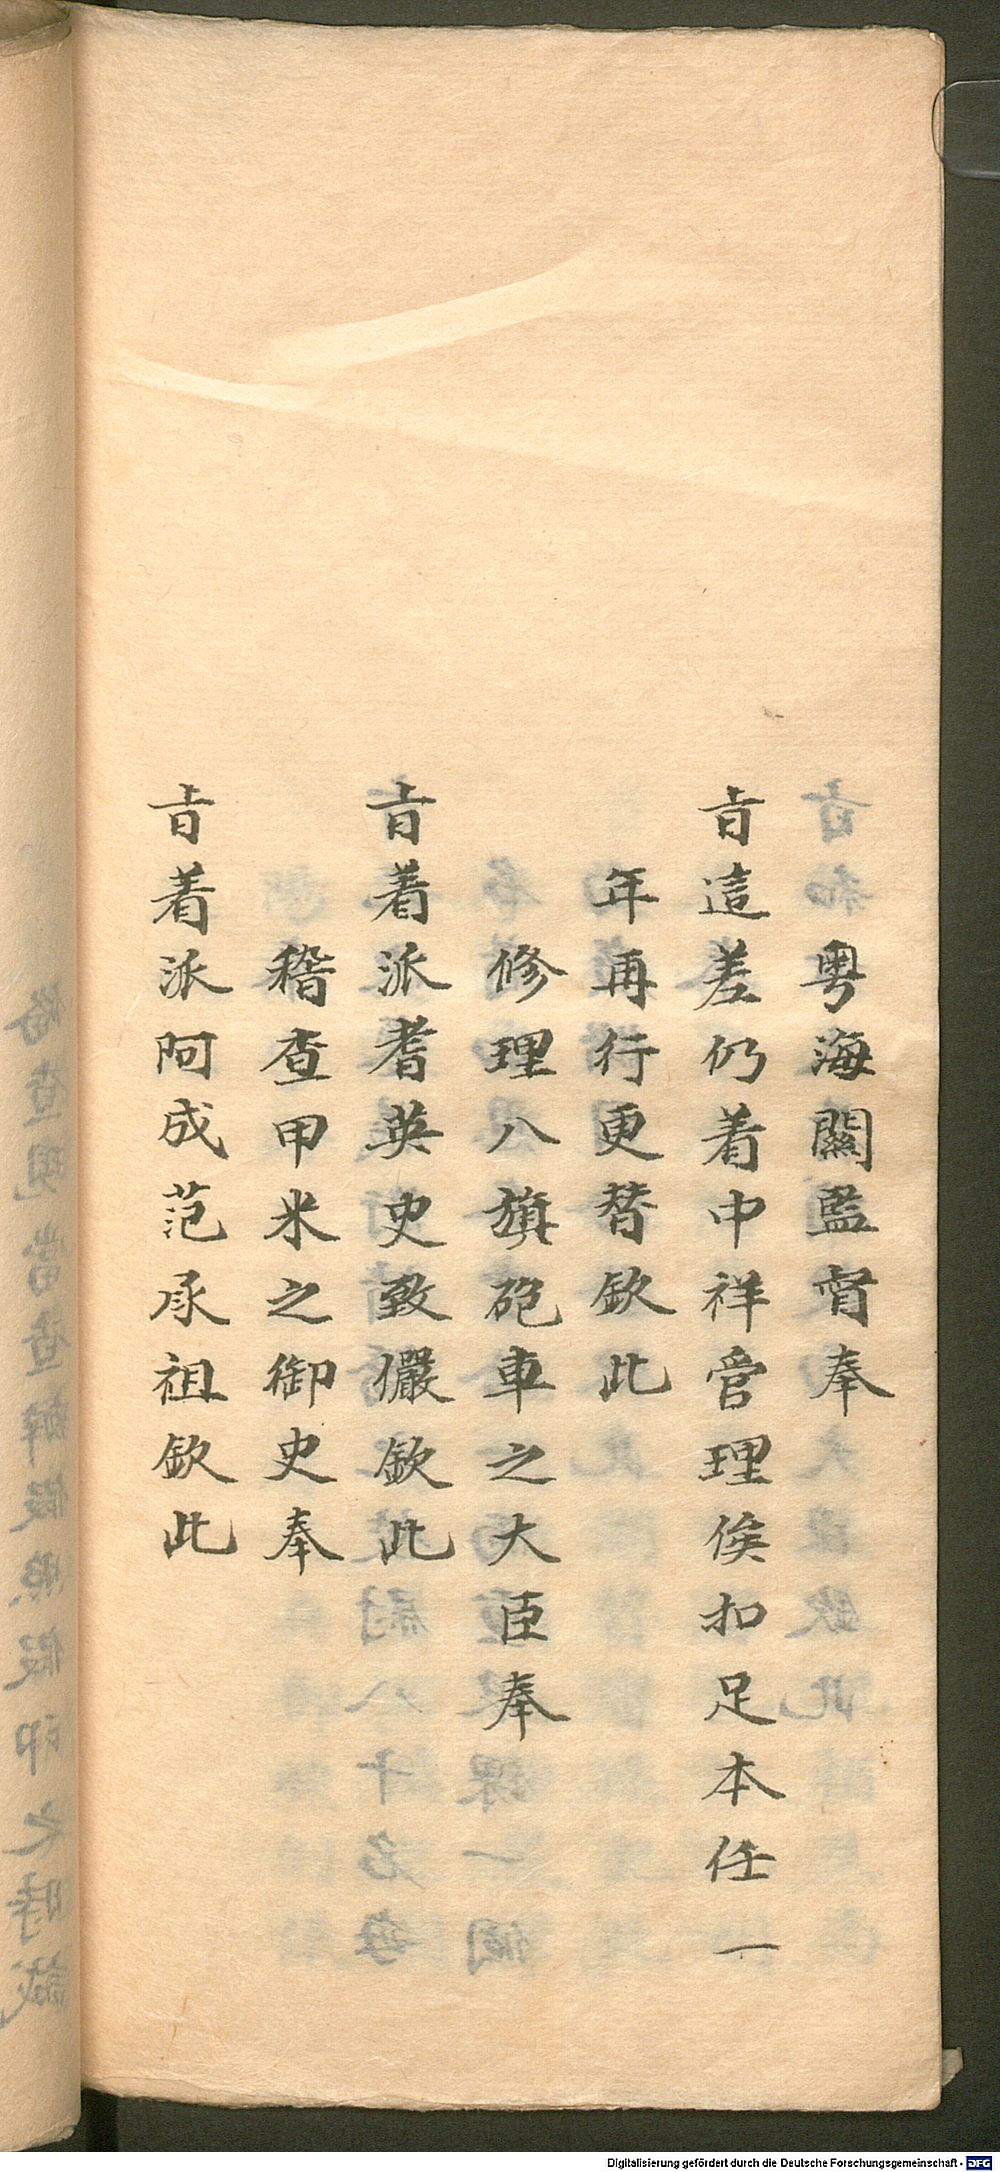 粤海關監督奉
旨這差仍着中祥管理俟扣足本任一
年再行更替欽此
修理八旗砲車之大臣奉
旨着派耆英史致儼欽此
稽查甲米之御史奉
旨着派阿成范承祖欽此
Digitalisierung gefördert durch die Deutsche Forschungsgemeinschaft - DFG